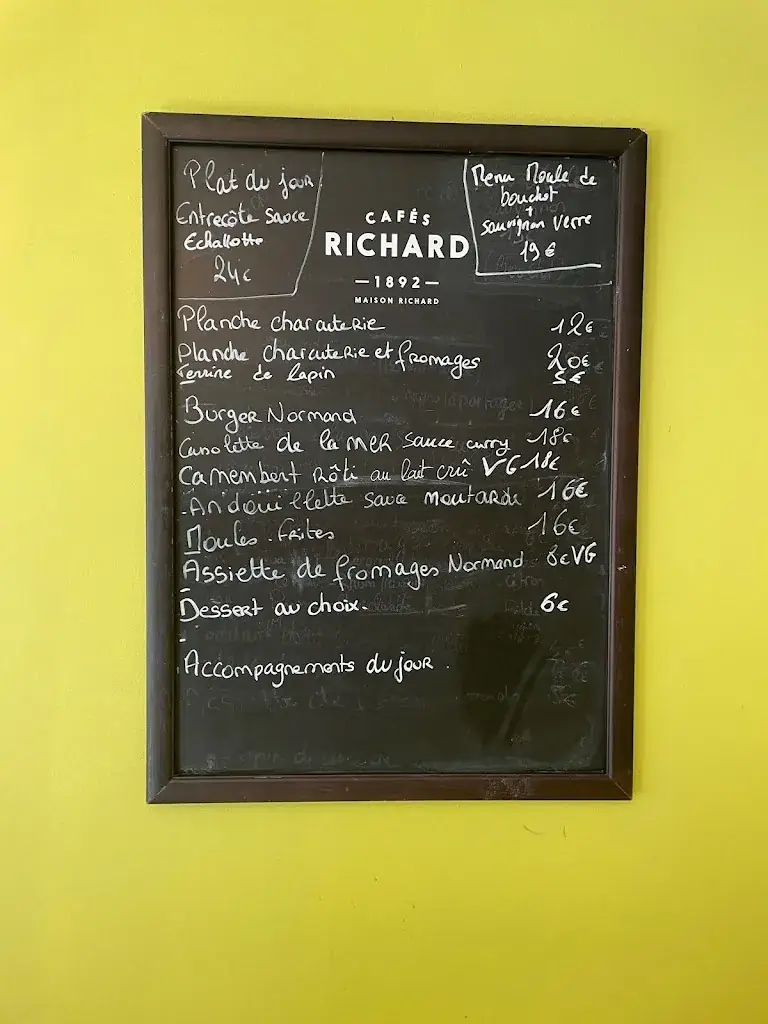 Plat du jour
Entrecôte sauce
Echallotte
24€
CAFÉS
RICHARD
—1892—
MAISON RICHARD
Menu Moule de
bouchot
+
sauvignon verre
19€
Planche charcuterie 12€
Planche charcuterie et fromages 20€
Terrine de lapin 5€
Burger Normand 16€
Cassolette de la mer sauce curry 18€
Camembert rôti au lait crû VG 18€
Andouillette sauce moutarde 16€
Moules - frites 16€
Assiette de fromages Normand 8€ VG
Dessert au choix. 6€
Accompagnements du jour.